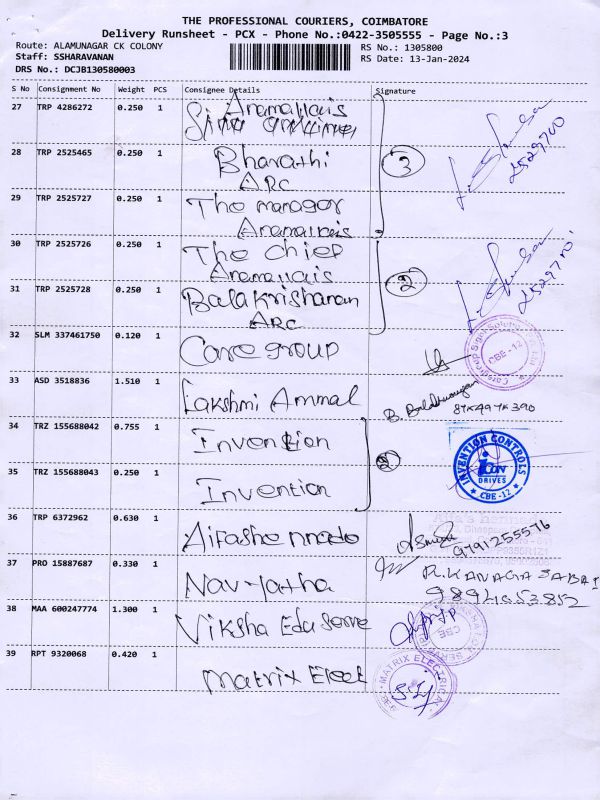 THE PROFESSIONAL COURIERS, COIMBATORE
Delivery Runsheet - PCX - Phone No.:0422-3505555 - Page No.:3
Route: ALAMUNAGAR CK COLONY
RS No.: 1305800
Staff: SSHARAVANAN
RS Date: 13-Jan-2024
DRS No.: DCJB130580003
S No Consignment No Weight PCS Consignee Details Signature
27 TRP 4286272 0.250 1 Anamallais
28 TRP 2525465 0.250 1 Bharathi
ARC
3
2529700
29 TRP 2525727 0.250 1 The manager
Anamallais
30 TRP 2525726 0.250 1 The chief
Anamallais
2
2529700
31 TRP 2525728 0.250 1 Balakrishanan
ARC
32 SLM 337461750 0.120 1 Care group
CBE-12
33 ASD 3518836 1.510 1 Lakshmi Ammal
34 TRZ 155688042 0.755 1 Invention
2
INVENTION CONTROLS
icon
DRIVES
CBE-12
35 TRZ 155688043 0.250 1 Invention
36 TRP 6372962 0.630 1
9791255576
37 PRO 15887687 0.330 1 Nav-Jatha
R.KANAGA SABAI
9894053852
38 MAA 600247774 1.300 1 Viksha Edu Serve
CBE
39 RPT 9320068 0.420 1 Matrix Elect
MATRIX ELECTRICAL